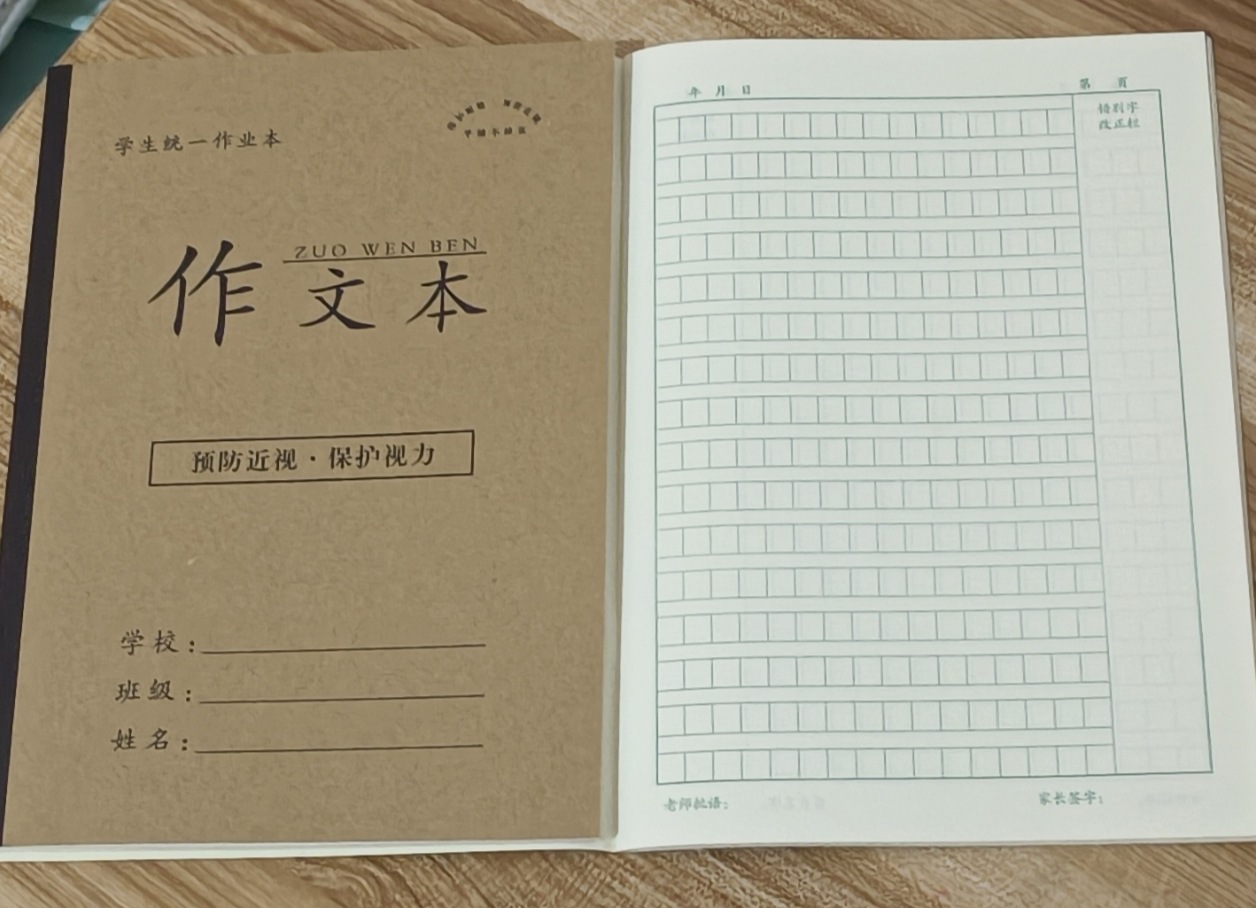 学生统一作业本
ZUO WEN BEN
作文本
预防近视·保护视力
学校：
班级：
姓名：
年 月 日
第 页
错别字
改正栏
老师批语：
家长签字：